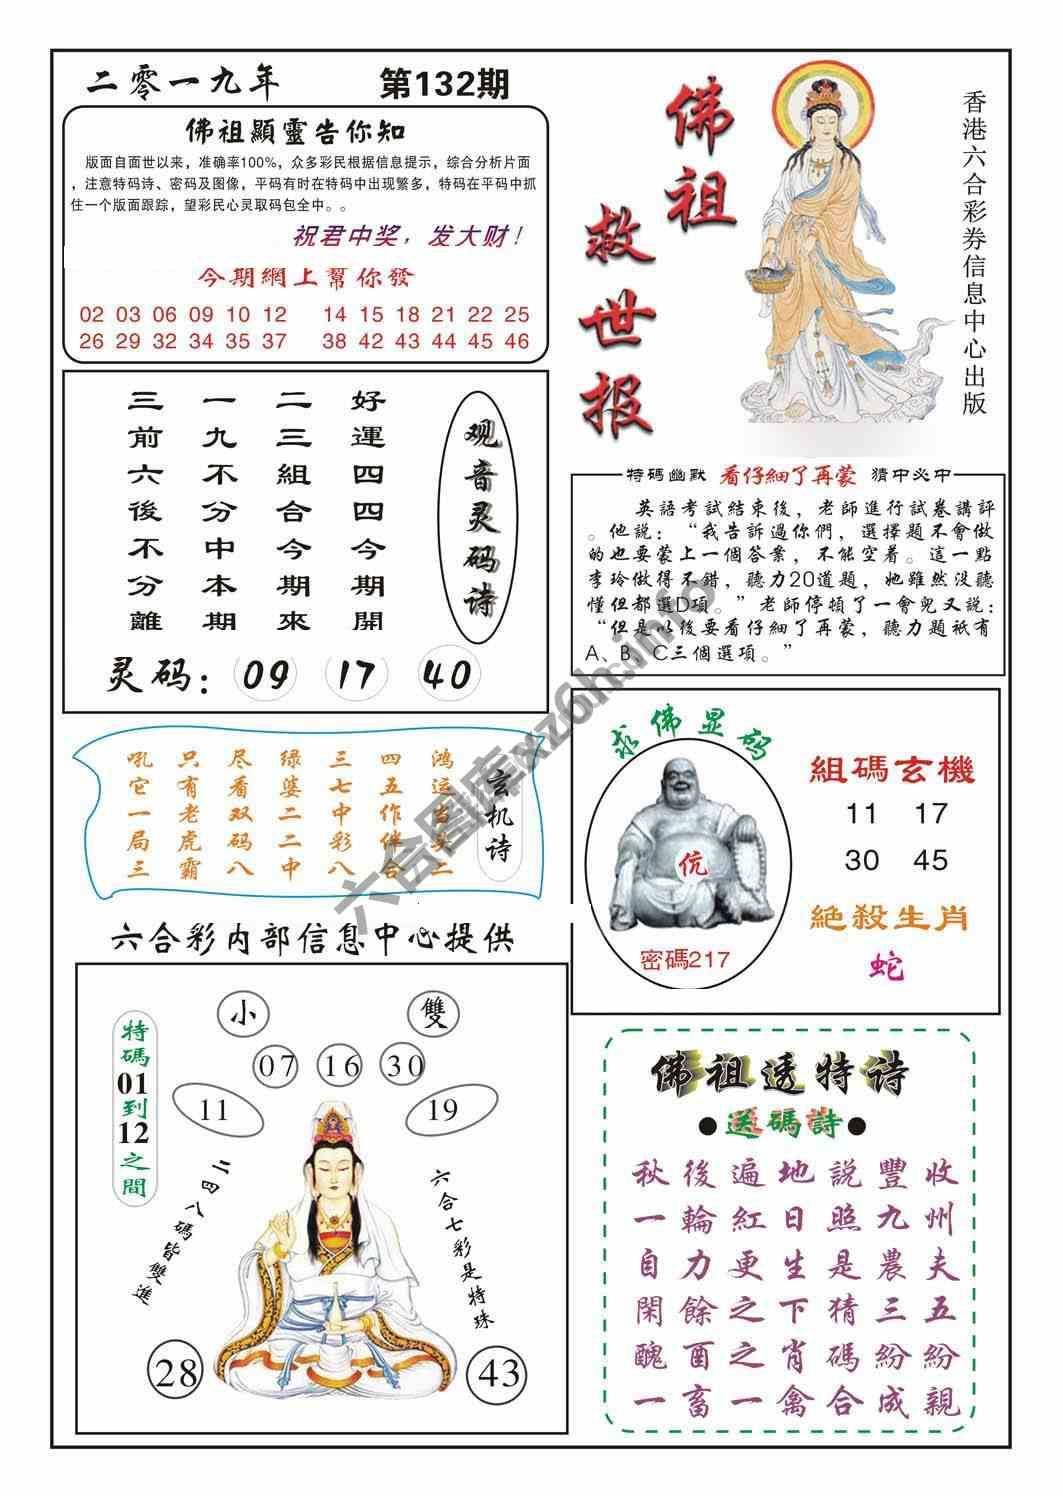 二零一九年
第132期
佛祖顯靈告你知
版面自面世以来，准确率100%，众多彩民根据信息提示，综合分析片面
，注意特码诗、密码及图像，平码有时在特码中出现繁多，特码在平码中抓
住一个版面跟踪，望彩民心灵取码包全中。。
祝君中奖，发大财！
今期網上幫你發
02 03 06 09 10 12 14 15 18 21 22 25
26 29 32 34 35 37 38 42 43 44 45 46
佛祖救世报
香港六合彩券信息中心出版
观音灵码诗
好運四四今期開
二三組合今期來
一九不分中本期
三前六後不分離
灵码：09 17 40
特碼幽默 看仔細了再蒙 猜中必中
英語考試結束後，老師進行試卷講評
。他説：“我告訴過你們，選擇題不會做
的也要蒙上一個答案，不能空着。這一點
李玲做得不錯，聽力20道題，她雖然没聽
懂但都選D項。”老師停頓了一會兒又説：
“但是以後要看仔細了再蒙，聽力題衹有
A、B、C三個選項。”
玄机诗
鸿运当头二
四五作伴合
三七中彩八
绿婆二二中
尽看双码八
只有老虎霸
吼它一局三
求佛显码
伉
密碼217
組碼玄機
11 17
30 45
絕殺生肖
蛇
六合彩内部信息中心提供
特碼01到12之間
小
雙
07 16 30
11
19
二四八碼皆雙進
六合七彩是特珠
28
43
佛祖透特诗
●送碼詩●
秋後遍地説豐收
一輪紅日照九州
自力更生是農夫
閑餘之下猜三五
醜酉之肖碼紛紛
一畜一禽合成親
六合图库xz6h.info